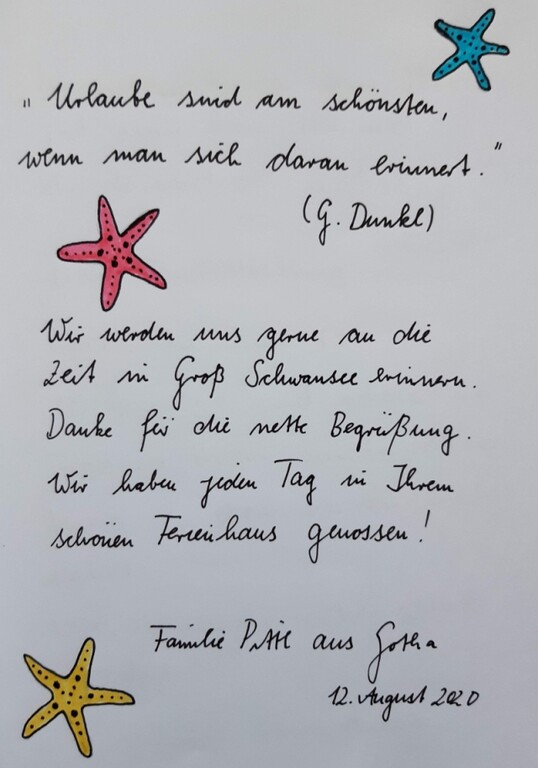 "Urlaube sind am schönsten,
wenn man sich daran erinnert."
(G. Dunkl)
Wir werden uns gerne an die
Zeit in Groß Schwansee erinnern.
Danke für die nette Begrüßung.
Wir haben jeden Tag in Ihrem
schönen Ferienhaus genossen!
Familie aus Gotha
12. August 2020